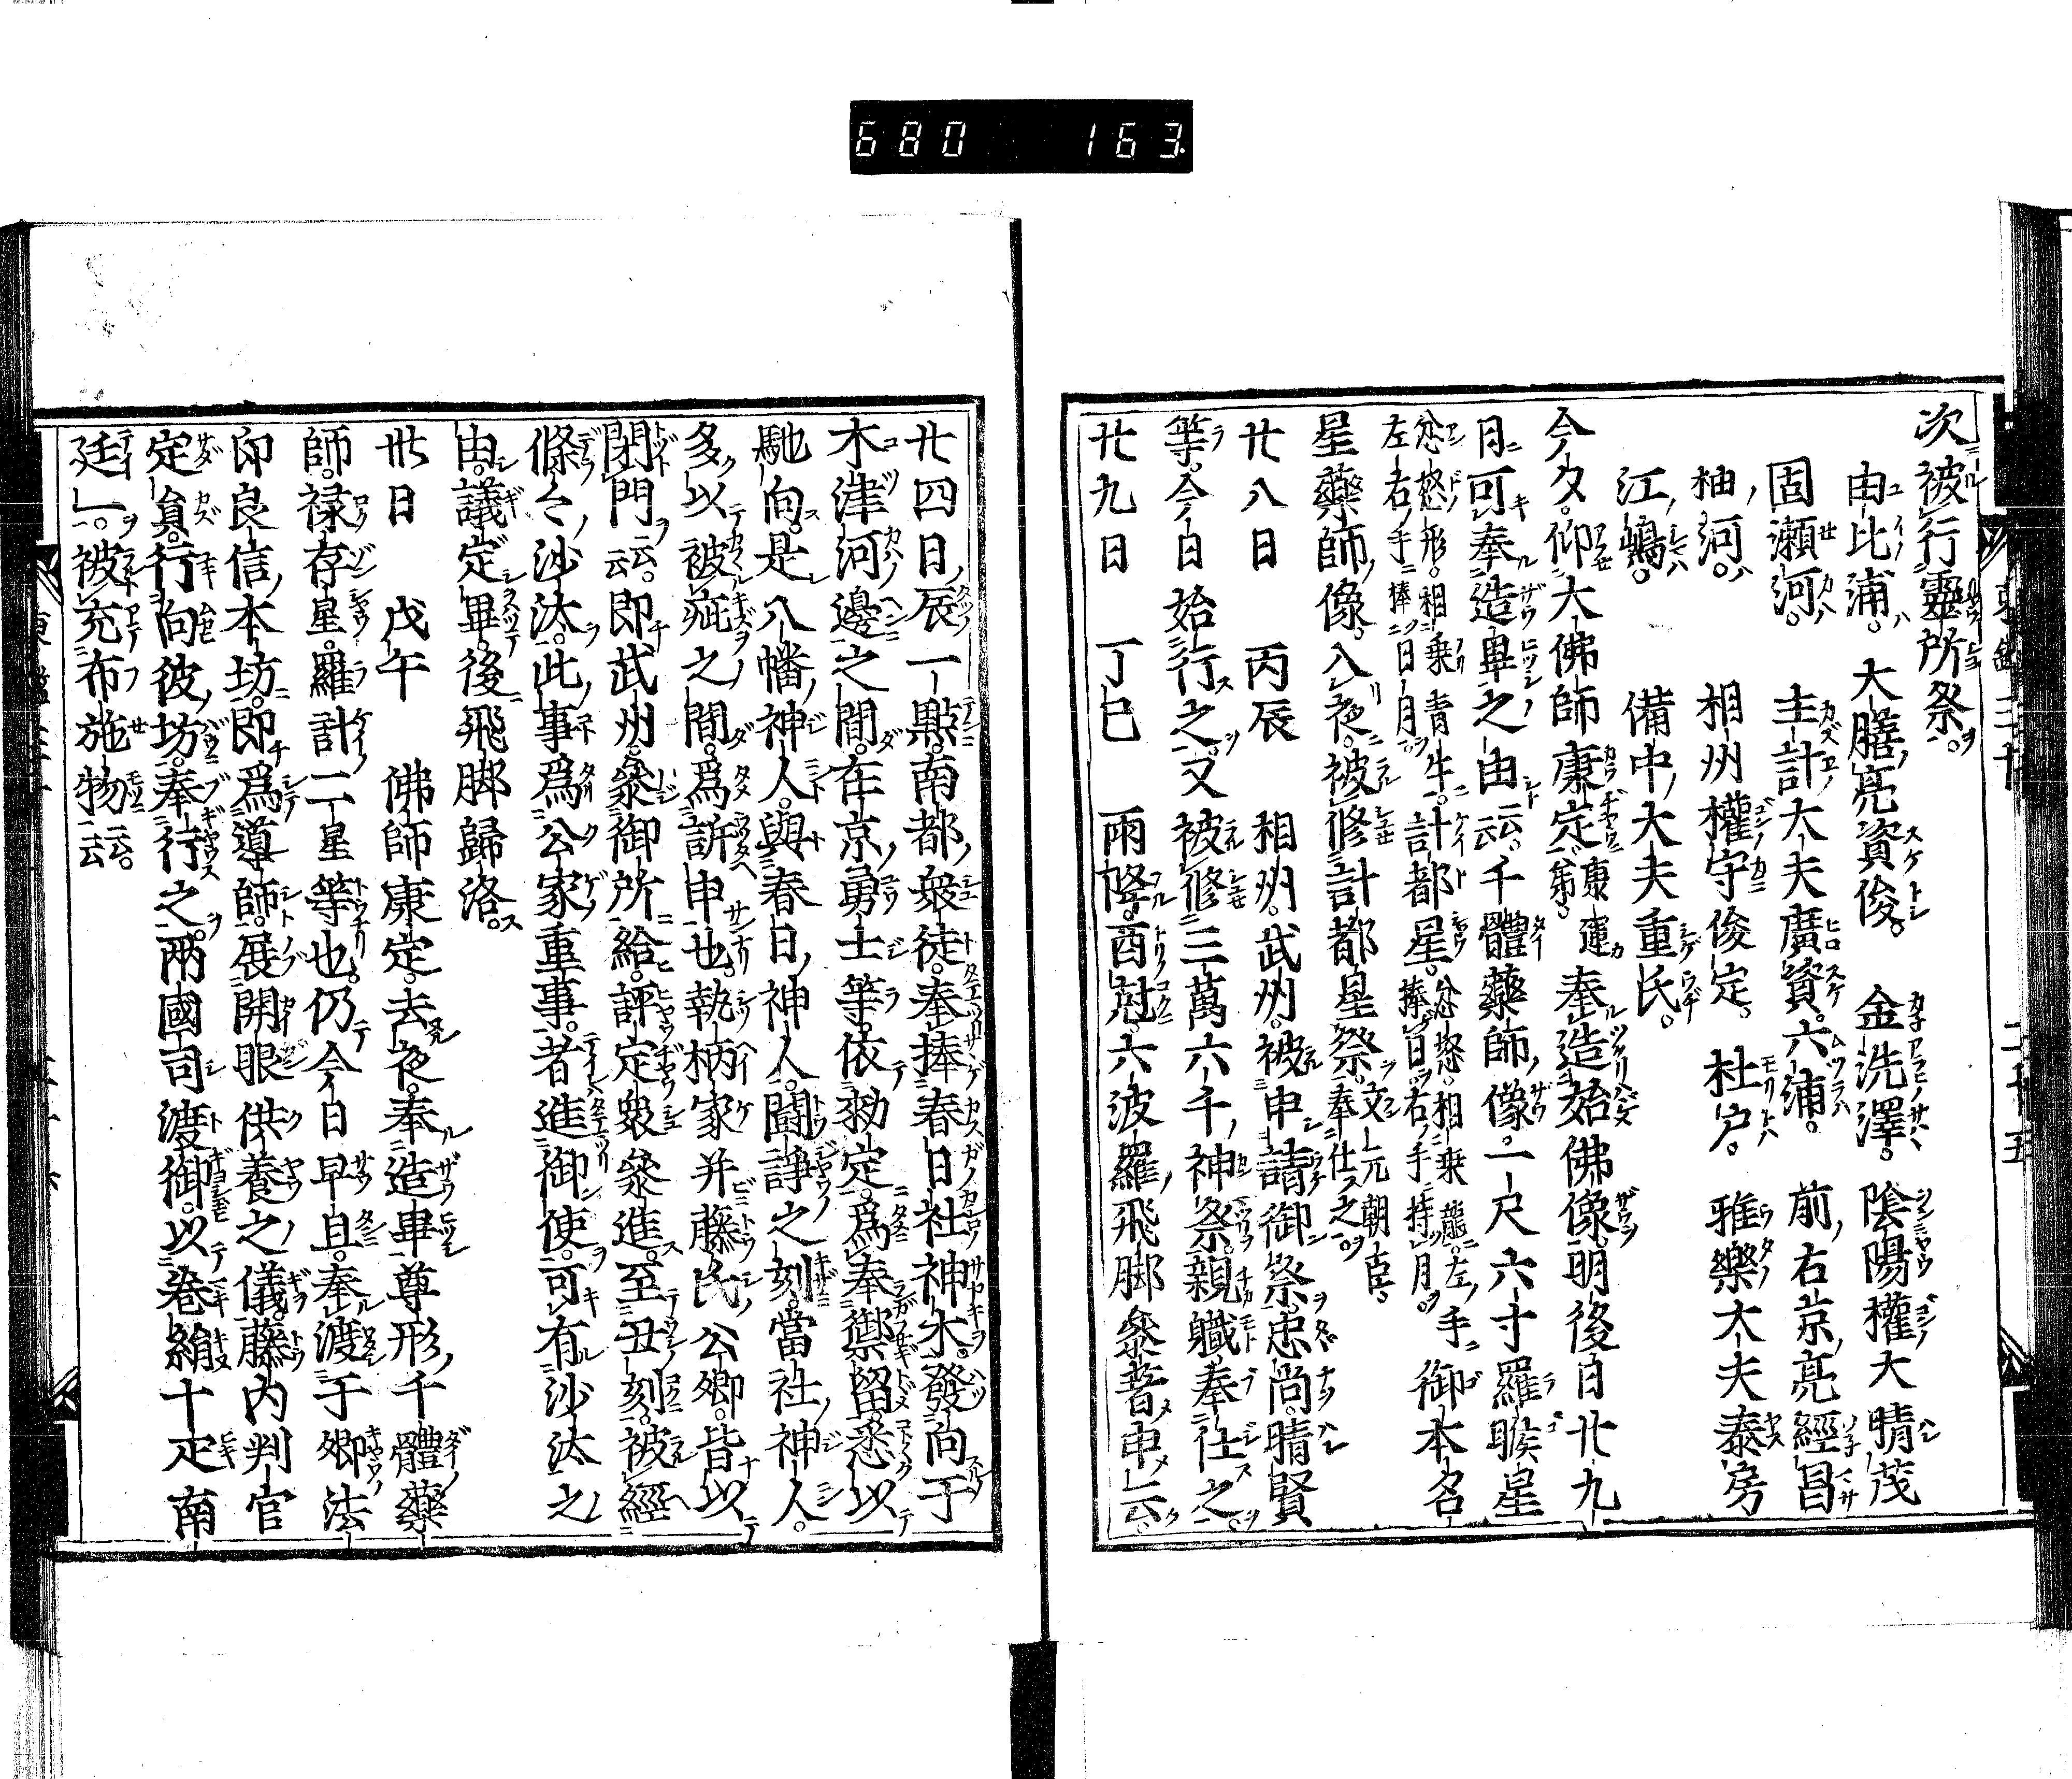 680 163
次被行靈所祭
由比浦。大膳亮資俊。金洗澤。陰陽權大晴茂
固瀬河。主計大夫廣資。六浦。前右京亮經昌
柚河。相州權守俊定。杜戸。雅樂大夫泰房
江嶋。備中大夫重氏。
今夕。仰大佛師康定。康運弟。奉造始佛像。明後日廿九
日可奉造畢之由云云。千體藥師像。一尺六寸羅睺星
忿怒形。相乗青牛。左右手捧日月。計都星。忿怒。相乗龍。左手捧日。右手持月。御本名
星藥師像。入夜。被修計都星祭。文元朝臣。奉仕之。
廿八日 丙辰 相州。武州。被申請御祭。忠尚。晴賢
等。今日始行之。又被修三萬六千神祭。親職奉仕之。
廿九日 丁巳 雨降。酉剋。六波羅飛脚參著申云。
廿四日辰一點。南都衆徒。奉捧春日社神木。發向于
木津河邊之間。在京勇士等。依勅定。爲奉禦留。悉以
馳向。是八幡神人。與春日神人。鬪諍之刻。當社神人。
多以被疵之間。爲訴申也。執柄家并藤氏公卿。皆以
閉門云云。即武州。參御所給。評定衆參進。至丑刻。被經
條々沙汰。此事爲公家重事。者進御使。可有沙汰之
由。議定畢。後飛脚歸洛。
卅日 戊午 佛師康定。去夜。奉造畢尊形千體藥
師。禄存星。羅計二星等也。仍今日早旦。奉渡于卿法
印良信本坊。即爲導師。展開眼供養之儀。藤内判官
定員。行向彼坊。奉行之。兩國司渡御。以卷絹十疋南
廷一。被充布施物云云。